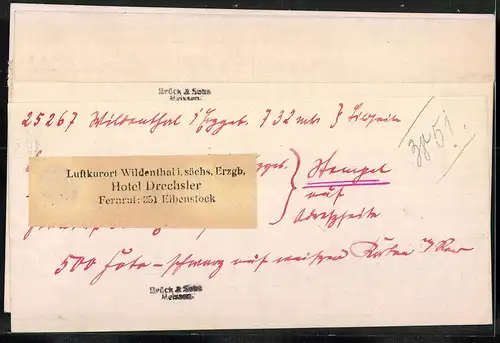 Brück & Sohn
Meissen.
25267 Wildenthal i/Erzgeb. 732 mtr } Bildseite
Luftkurort Wildenthal i. sächs. Erzgb.
Hotel Drechsler
Fernruf: 251 Eibenstock
Stempel
auf
Adreßseite
500 Foto – schwarz auf weissen Karton
Brück & Sohn
Meissen.